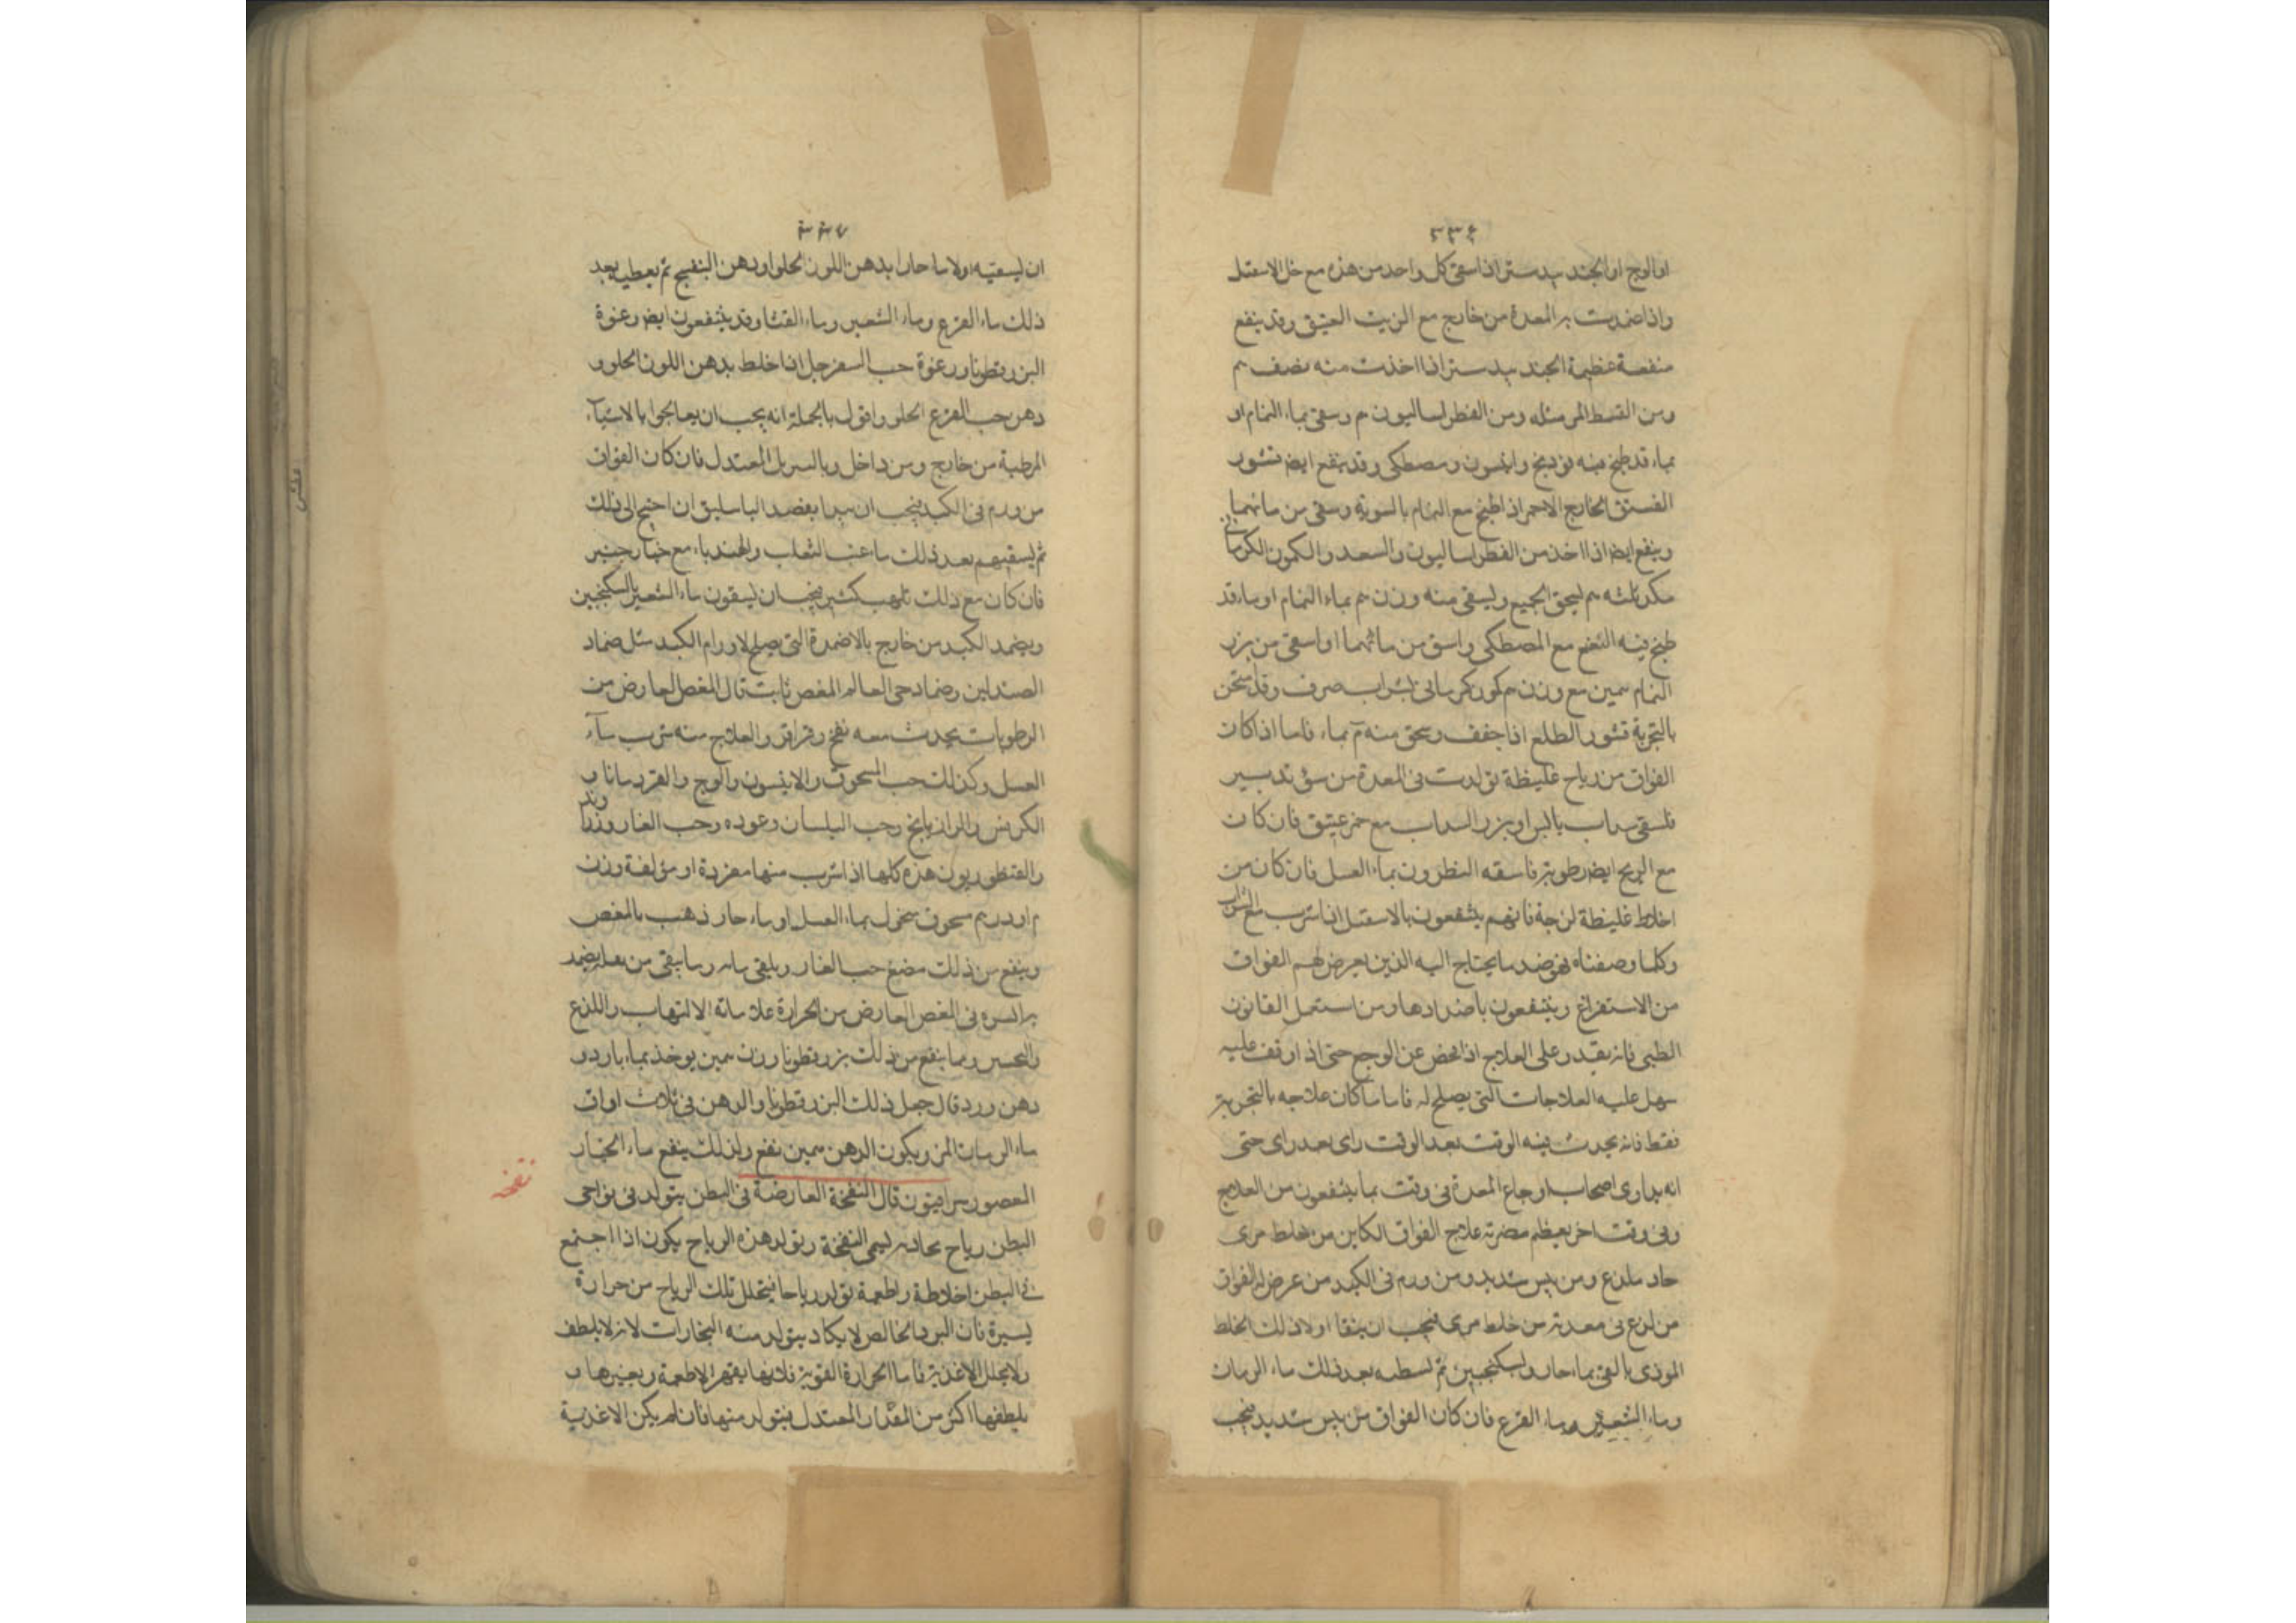 ٣٣٤
او الوج او الجند بيدستر اذا سقى كل واحد من هذه مع خل الاسقيل
واذا ضمدت به المعدة من خارج مع الزيت العتيق وقد ينفع
منفعة عظيمة الجند بيدستر اذا اخذت منه نصف م
ومن القسط المر مثله ومن الفطراساليون م وسقى بماء النمام او
بماء قد طبخ فيه فودنج وانيسون ومصطكى وقد ينفع ايضا قشور
الفستق الخارج الاحمر اذ اطبخ مع النمام بالسوية وسقى من مائهما
وينفع ايضا اذا اخذ من الفطراساليون والسعد والكمون الكرمانى
مكد ثلثه م يسحق الجميع ويسقى منه وزن م بماء النمام او ماء قد
طبخ فيه النعنع مع المصطكى واسق من مائهما او اسقى من بزر
النمام مع وزن م كمون كرمانى بشراب صرف وقد
بالتجربة قشور الطلع اذا جفف وسحق منه م بماء فاما اذا كان
الفواق من رياح غليظة تولدت فى المعدة من سوء تدبير
فلسقى سداب بالبر او بزر السداب مع خمر عتيق فان كان
مع الريح ايضا رطوبة فاسقه النطرون بماء العسل فان كان من
اخلاط غليظة لزجة فانهم ينتفعون بالاسقيل اذا شرب مع الشراب
وكلما وصفناه فهو ضد ما يحتاج اليه الذين يعرض لهم الفواق
من الاستفراغ وينتفعون باضدادها ومن استعمل القانون
الطبى فانه يقدر على العلاج اذا فحص عن الوجع حتى اذ اوقف عليه
سهل عليه العلاجات التى يصلح له فاما ما كان علاجه بالتجربة
فقط فانه يحدث فيه الوقت بعد الوقت راى بعد راى حتى
انه يداوى اصحاب اوجاع المعدة فى وقت بما ينتفعون من العلاج
وفى وقت اخر يعظم مضرته علاج الفواق الكاين من خلط مرى
حاد ملذع ومن يبس شديد ومن ورم فى الكبد من عرض له الفواق
من لذع فى معدته من خلط مرى فيجب ان ينقا اولا ذلك الخلط
الموذى بالقى بماء حار وسكنجبين ثم بعد ذلك ماء الرمان
وماء الشعير وماء القرع فان كان الفواق من يبس شديد فيجب
٣٣٧
ان يسقيه اولا ماء حارا بدهن اللوز الحلو او دهن البنفسج ثم يعطيه بعد
ذلك ماء القرع وماء الشعير وماء القثا وقد ينتفعون ايضا رغوة
البزرقطونا ورغوة حب السفرجل اذا خلط بدهن اللوز الحلو و
دهن حب القرع الحلو واقول بالجملة انه يجب ان يعالجوا بالاشياء
المرطبة من خارج ومن داخل وبالسربل المعتدل فان كان الفواق
من ورم فى الكبد فيجب ان يبدا بفصد الباسليق ان احتيج الى ذلك
ثم يسقيهم بعد ذلك ماء عنب الثعلب والهندباء مع خيار جنبر
فان كان مع ذلك تلهب كثير فيجب ان يسقون ماء الشعير بالسكنجبين
ويضمد الكبد من خارج بالاضمدة التى يصلح لاورام الكبد مثل ضماد
الصندلين وضماد حى العالم المغص ثابت قال المغص العارض من
الرطوبات يحدث معه نفخ وقراقر والعلاج منه شرب ماء
العسل وكذلك حب المسحوق والانيسون والوج والقردمانا و
الكرفس والرازيانج وحب البلسان وعوده وحب الغار
والقنطوريون هذه كلها اذا شرب منها مفردة او مؤلفة وزن
م او درهم مسحوق منخول بماء العسل او ماء حار ذهب بالمغص
وينفع من ذلك مضغ حب الغار ويلقى ماءه وما يبقى من يضمد
به السرة فى المغص العارض من الحرارة علامته الالتهاب واللذع
ومما ينفع من ذلك بزرقطونا وزن يوخذ بماء بارد و
دهن ورد قال جعل ذلك البزرقطونا والدهن فى ثلاث اواق
ماء الرمان المز ويكون الدهن نفع ولذلك ينفع ماء الخيار
المعصور سرافيون قال النفخة العارضة فى البطن يتولد فى نواحى
البطن رياح يسمى النفخة وتولد هذه الرياح يكون اذا اجتمع
فى البطن اخلاط واطعمة تولد رياحا فيتحلل تلك الرياح من حرارة
يسيرة فان البرد الخالص لا يكاد يتولد منه البخارات لانه لا يلطف
ولا يحلل الاغذية فاما الحرارة القوية فلانها يقهر الاطعمة ويغيرها و
يلطفها اكثر من المقدار المعتدل فيتولد منها فان لم يكن الاغذية
نفخه